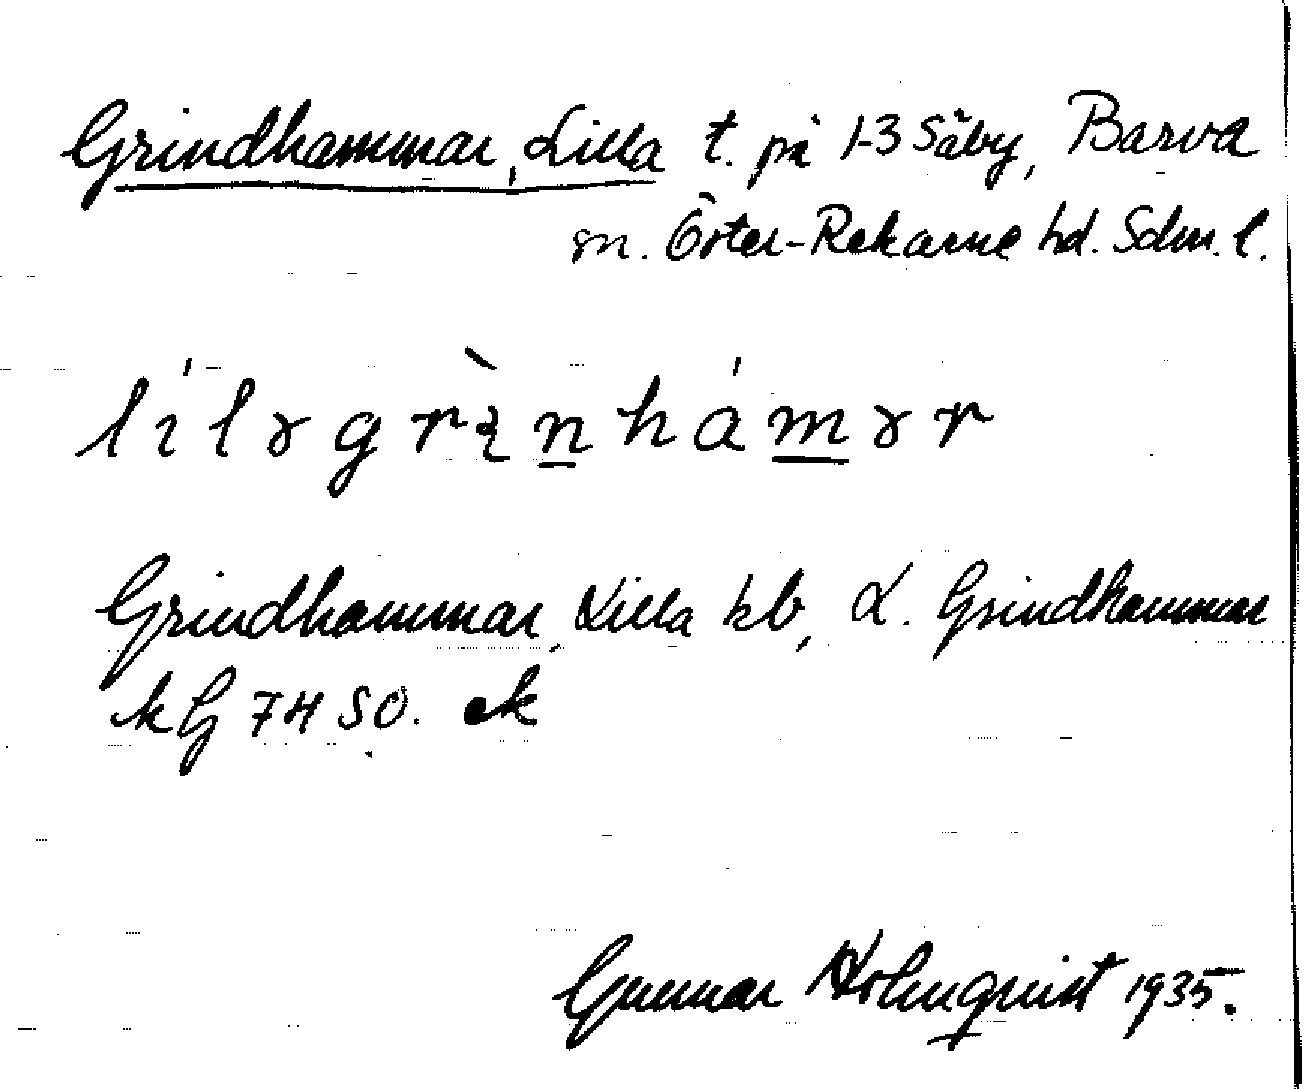 Grindhammar, Lilla t. på 1-3 Säby, Barva
sn. Öster-Rekarne hd. Sdm. l.
lílɤgrìnhámɤr
Grindhammar, Lilla kb, L. Grindhammar
k G 74 SO. ek
Gunnar Holmquist 1935.